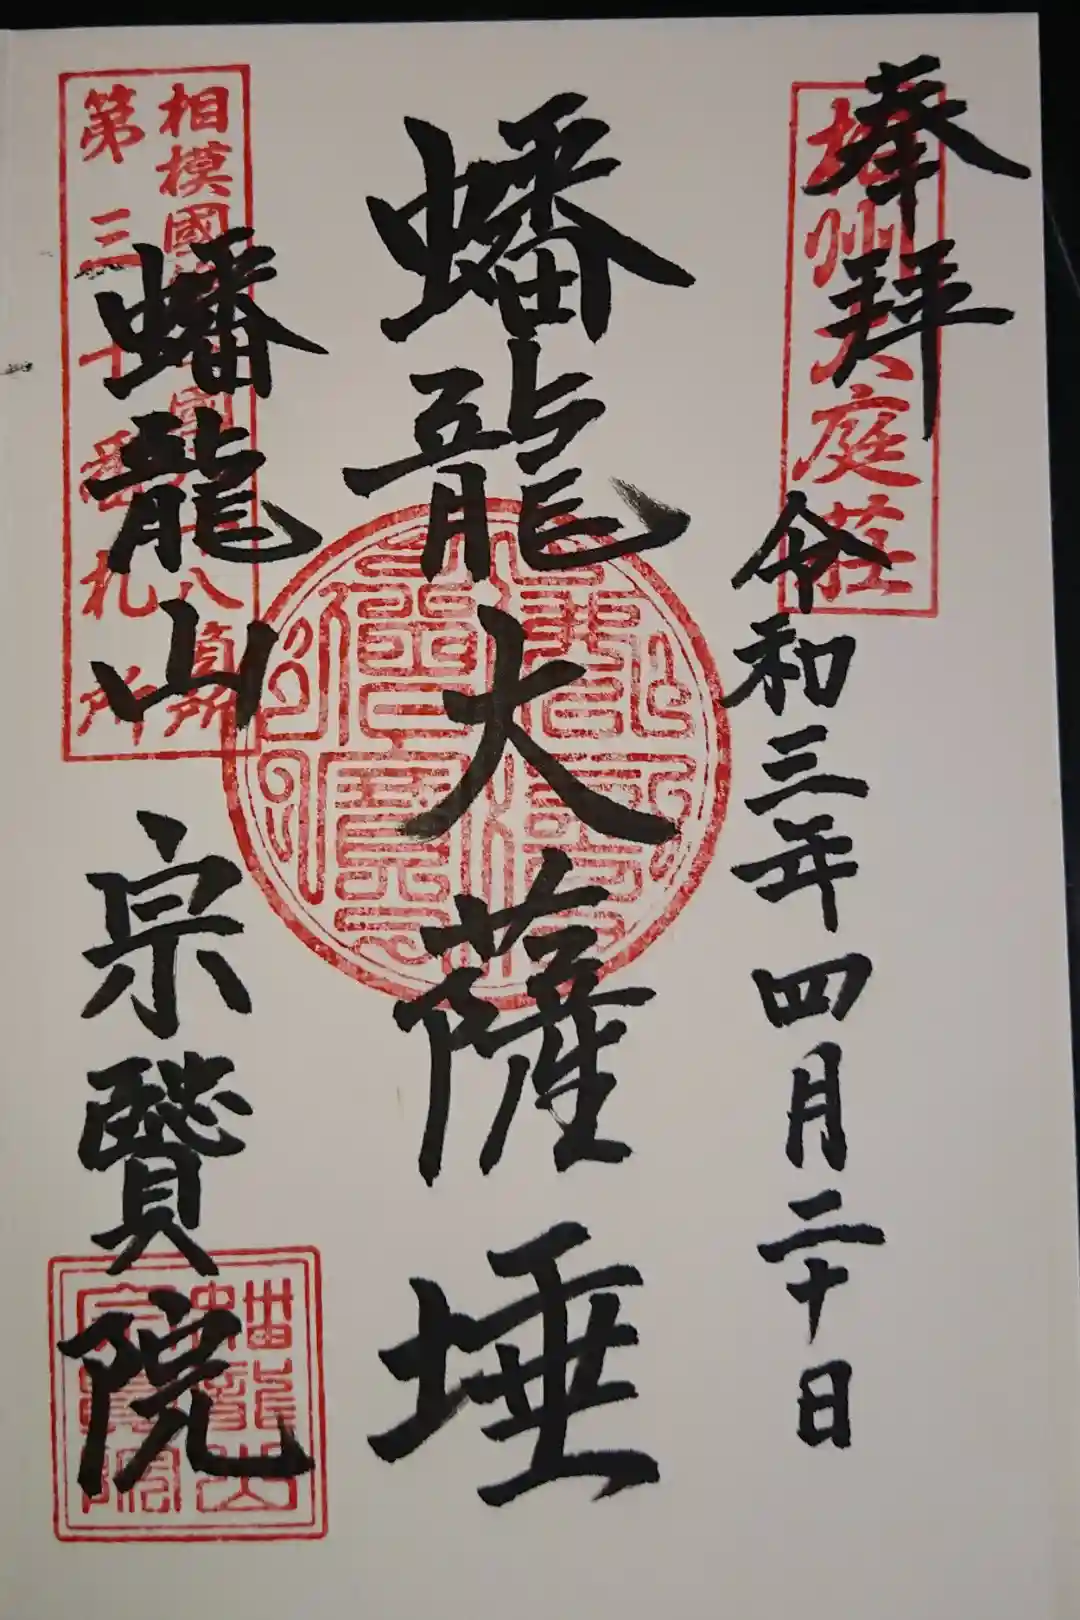 奉拝
相州大庭荘
令和三年四月二十日
蟠龍大薩埵
佛法僧寳
相模國準四國八十八箇所
第三十番札所
蟠龍山
宗賢院
蟠龍山
宗賢院